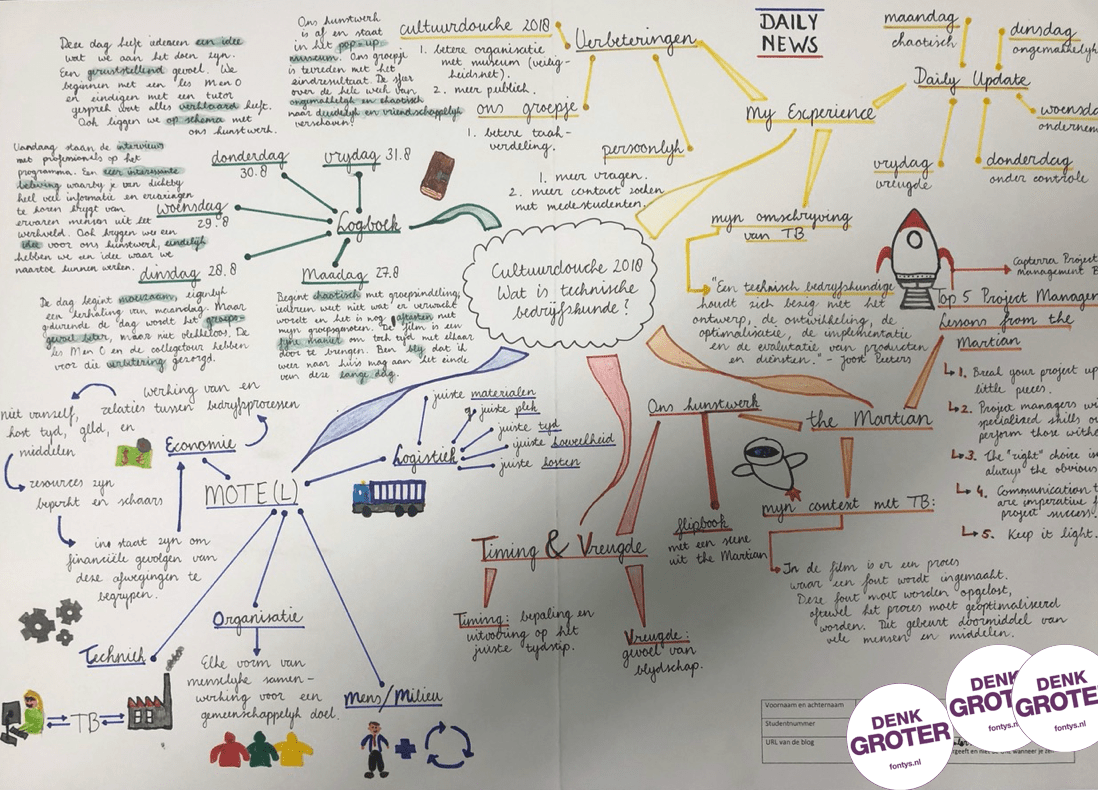 Deze dag heeft iedereen een idee
wat we aan het doen zijn.
Een geruststellend gevoel. We
beginnen met een les M en O
en eindigen met een tutor
gesprek wat alles verklaard heeft.
Ook liggen we op schema met
ons kunstwerk.
Ons kunstwerk
is af en staat
in het pop-up
museum. Ons groepje
is tevreden met het
eindresultaat. De sfeer
over de hele week van
ongemakkelijk en chaotisch
naar duidelijk en vriendschappelijk
verschoven.
cultuurdouche 2018
1. betere organisatie
met museum (veilig-
heidsnet).
2. meer publiek.
Verbeteringen
ons groepje
1. betere taak-
verdeling.
persoonlijk
1. meer vragen.
2. meer contact zoeken
met medestudenten.
DAILY
NEWS
My Experience
maandag
chaotisch
dinsdag
ongemakkelijk
Daily Update
woensda
ondernem
donderdag
onder controle
vrijdag
vreugde
Vandaag staan de interviews
met professionals op het
programma. Een zeer interessante
beleving waarbij je van dichtbij
heel veel informatie en ervaringen
te horen krijgt van
ervaren mensen uit het
werkveld. Ook krijgen we een
idee voor ons kunstwerk, eindelijk
hebben we een idee waar we
naartoe kunnen werken.
donderdag
30.8
vrijdag 31.8
woensdag
29.8
Logboek
dinsdag 28.8
De dag begint moeizaam, eigenlijk
een herhaling van maandag. Maar
gedurende de dag wordt het groeps-
gevoel beter, maar niet vlekkeloos. De
les M en O en de collegetour hebben
voor die verbetering gezorgd.
Maadag 27.8
Begint chaotisch met groepsindeling,
iedereen weet niet wat er verwacht
wordt en het is nog aftasten met
mijn groepsgenoten. De film is een
fijne manier om toch tijd met elkaar
door te brengen. Ben blij dat ik
weer naar huis mag aan het einde
van deze lange dag.
Cultuurdouche 2018
Wat is technische
bedrijfskunde?
mijn omschrijving
van TB
"Een technisch bedrijfskundige
houdt zich bezig met het
ontwerp, de ontwikkeling, de
optimalisatie, de implementatie
en de evaluatie van producten
en diensten." - Joost Peeters
Capterra Project
management B
Top 5 Project Managem
Lessons from the
Martian
1. Break your project up
little pieces.
2. Project managers wi
specialized skills ou
perform those witho
3. The "right" choice is
always the obvious
4. Communication t
are imperative f
project success.
5. Keep it light.
the Martian
Ons kunstwerk
flipbook
met een scene
uit the Martian
mijn context met TB:
In de film is er een proces
waar een fout wordt ingemaakt.
Deze fout moet worden opgelost,
oftewel het proces moet geoptimaliseerd
worden. Dit gebeurt doormiddel van
vele mensen en middelen.
werking van en
relaties tussen bedrijfsprocessen
niet vanzelf,
kost tijd, geld, en
middelen
Economie
resources zijn
beperkt en schaars
in staat zijn om
financiële gevolgen van
deze afwegingen te
begrijpen.
MOTE(L)
Logistiek
juiste materialen
juiste plek
juiste tijd
juiste hoeveelheid
juiste kosten
Timing & Vreugde
Timing: bepaling en
uitvoering op het
juiste tijdstip.
Vreugde:
gevoel van
blijdschap.
Organisatie
Elke vorm van
menselijke samen-
werking voor een
gemeenschappelijk doel.
Techniek
TB
Mens/Milieu
Voornaam en achternaam
Studentnummer
URL van de blog
DENK
GROTER
fontys.nl
DENK
GROTER
fontys.nl
DENK
GROTER
fontys.nl